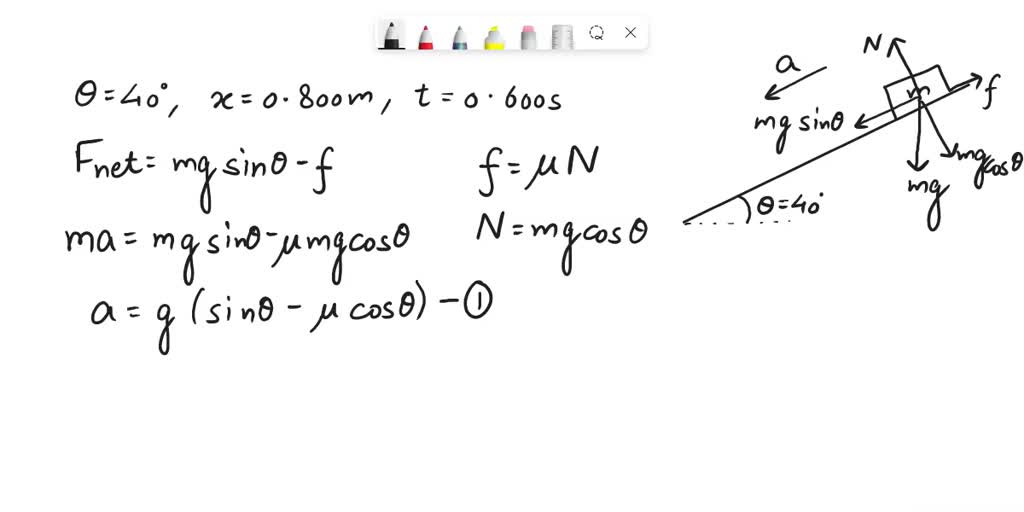 θ = 40°, x = 0.800m, t = 0.600s
Fnet = mg sinθ - f
f = μN
ma = mg sinθ - μmg cosθ
N = mg cosθ
a = g (sinθ - μ cosθ) - ①
N
a
m
f
mg sinθ
mg cosθ
mg
θ = 40°